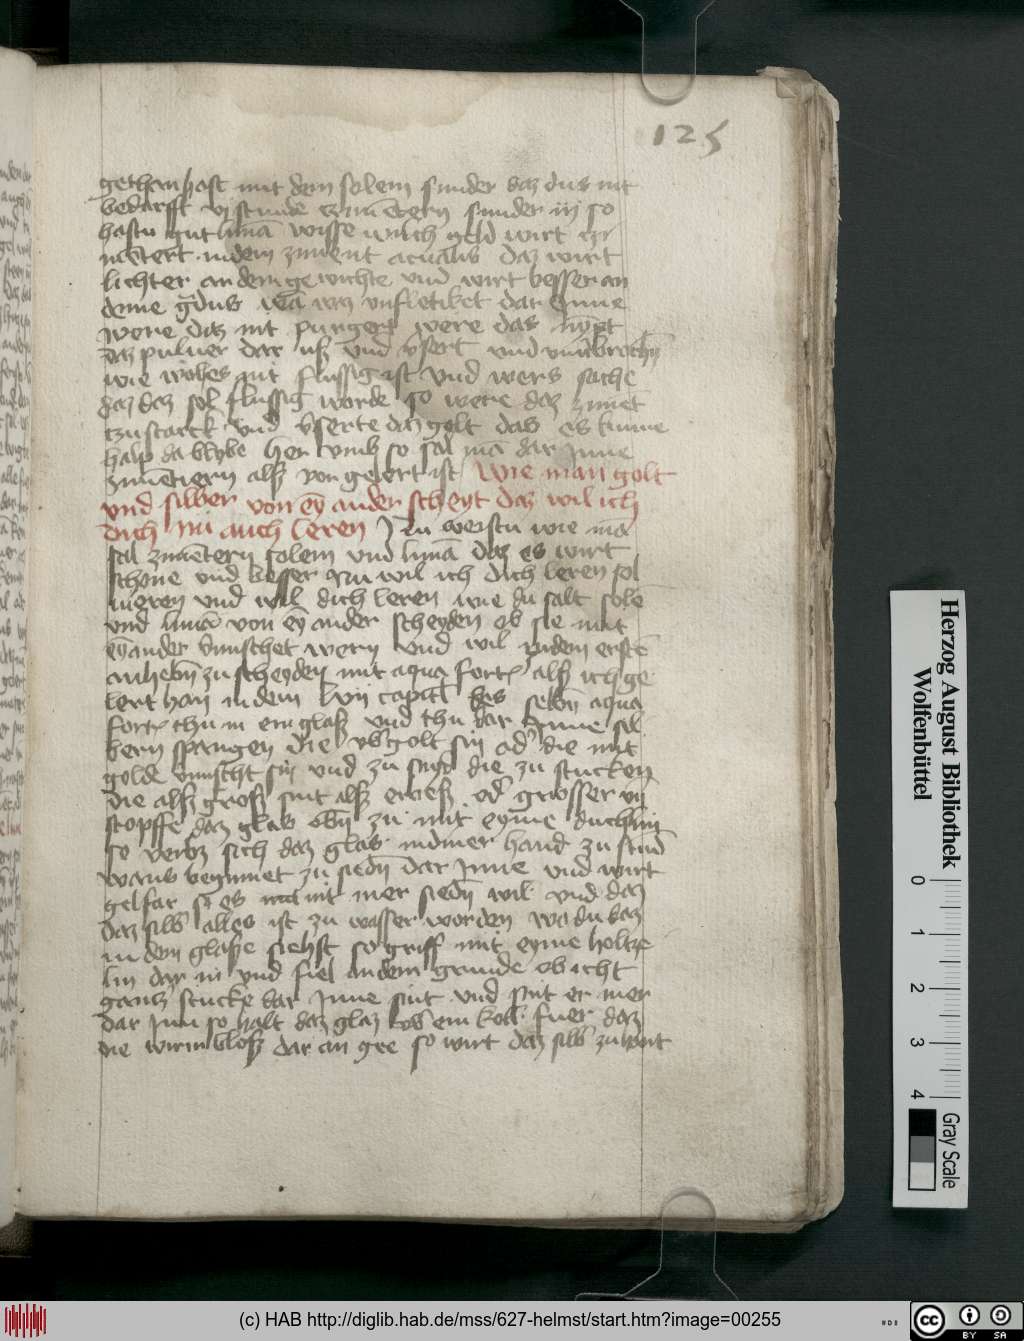 125
gethan hast mit dem solem sunder daz dus nit
bedarfft vj stunde czimētern sunder iij so
hastu gut lunā wisse wilch geld wirt czi
mētert indem ziment acualis daz wirt
lichter an dem gewichte vnd wirt besser an
deme gdus waz vnfletiket dar Inne
were daz nit purgert were das nympt
daz puluer dar uß vnd vsert vnd
wie wol es nit flussig ist vnd wers sache
daz daz sol flussig worde so were daz zimet
czu starck vnd vserte daz golt das es kume
halp da blybe her vmb so sal mā dar Inne
zimētiern alß vor gelert ist Wie man golt
vnd silber von ey ander scheyt daz wil ich
dich nu auch leren Nu weistu wie mā
sal zimētern solem vnd lunā daz es wirt
schone vnd besser Nu wil ich dich leren sol
uieren vnd wil dich leren wie du salt sole
vnd lunā von ey ander scheyden ob sie mit
ey ander vmischet wern vnd wil indem erstē
anhebn zu scheyden mit aqua fort alß ich ge
lert han in dem capitl des selbn aqua
fort thu in ein glaß vnd thu dar Inne sil
bern spangen die vbgolt sin od die mit
golde vmischt sin vnd zu snyt die zu stucken
die alß groß sint alß erveß od grosser vn
stopffe daz glas obn zu mit eyme duchlin
so verbz sich daz glas in diner hand zu stūd
wans begynnet zu siedn dar Inne vnd wirt
gelfar so es nit mer siedn wil vnd daz
daz silb alles ist zu wasser worden wo du daz
in dem glaße siehst so griff mit eyme holtze
lin dar in vnd fiel an dem grunde ob icht
gantz stucke dar Inne sint vnd sint er mer
dar Inn so halt daz glaz vb ein koll fuer daz
die wirm bloß dar an gee so wirt daz silb zuhant
Herzog August Bibliothek
Wolfenbüttel
0 1 2 3 4
Gray Scale
(c) HAB http://diglib.hab.de/mss/627-helmst/start.htm?image=00255
cc BY SA